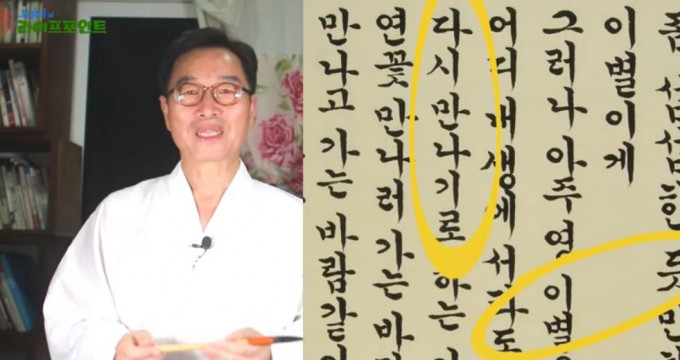 라이프포인트
좀 섭섭한 듯만
이별이게
그러나 아주 영 이별
어디 내생에서라도
다시 만나기로 하는 이
연꽃 만나러 가는 바
만나고 가는 바람같이